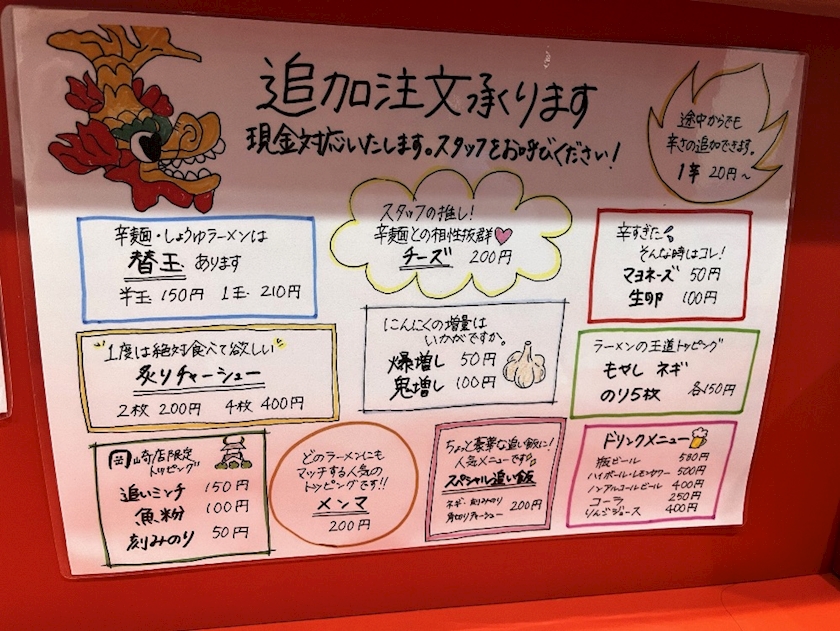 追加注文承ります
現金対応いたします。スタッフをお呼びください！
途中からでも
辛さの追加できます。
1辛 20円～
辛麺・しょうゆラーメンは
替玉 あります
半玉 150円 1玉 210円
スタッフの推し！
辛麺との相性抜群
チーズ 200円
辛すぎた
そんな時はコレ！
マヨネーズ 50円
生卵 100円
1度は絶対食べて欲しい
炙りチャーシュー
2枚 200円 4枚 400円
にんにくの増量は
いかがですか。
爆増し 50円
鬼増し 100円
ラーメンの王道トッピング
もやし ネギ
のり5枚 各150円
岡崎店限定
トッピング
追いミンチ 150円
魚粉 100円
刻みのり 50円
どのラーメンにも
マッチする人気の
トッピングです!!
メンマ
200円
ちょっと豪華な追い飯に！
人気メニューです。
スペシャル追い飯
ネギ・刻みのり
角切りチャーシュー 200円
ドリンクメニュー
瓶ビール 580円
ハイボール・レモンサワー 500円
ノンアルコールビール 400円
コーラ 250円
りんごジュース 400円